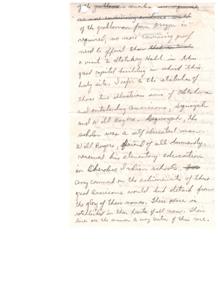 of the gentleman from Oregon is
required, no more convincing proof
need be offered than
a visit to Statuary Hall in this
great capitol building in which this
body sits. I refer to the statutes of
those two illustrious sons of
and outstanding Americans, Sequoyah
and Will Rogers. Sequoyah, the
scholar was a self educated man.
Will Rogers, friend of all humanity,
received his elementary education
in Cherokee Indian schools.
any comment on the achievements of these
great Americans would but detract from
the glory of their names. Their place is
established in the hearts of all men. Their
lives are the answer to any critics of this race.